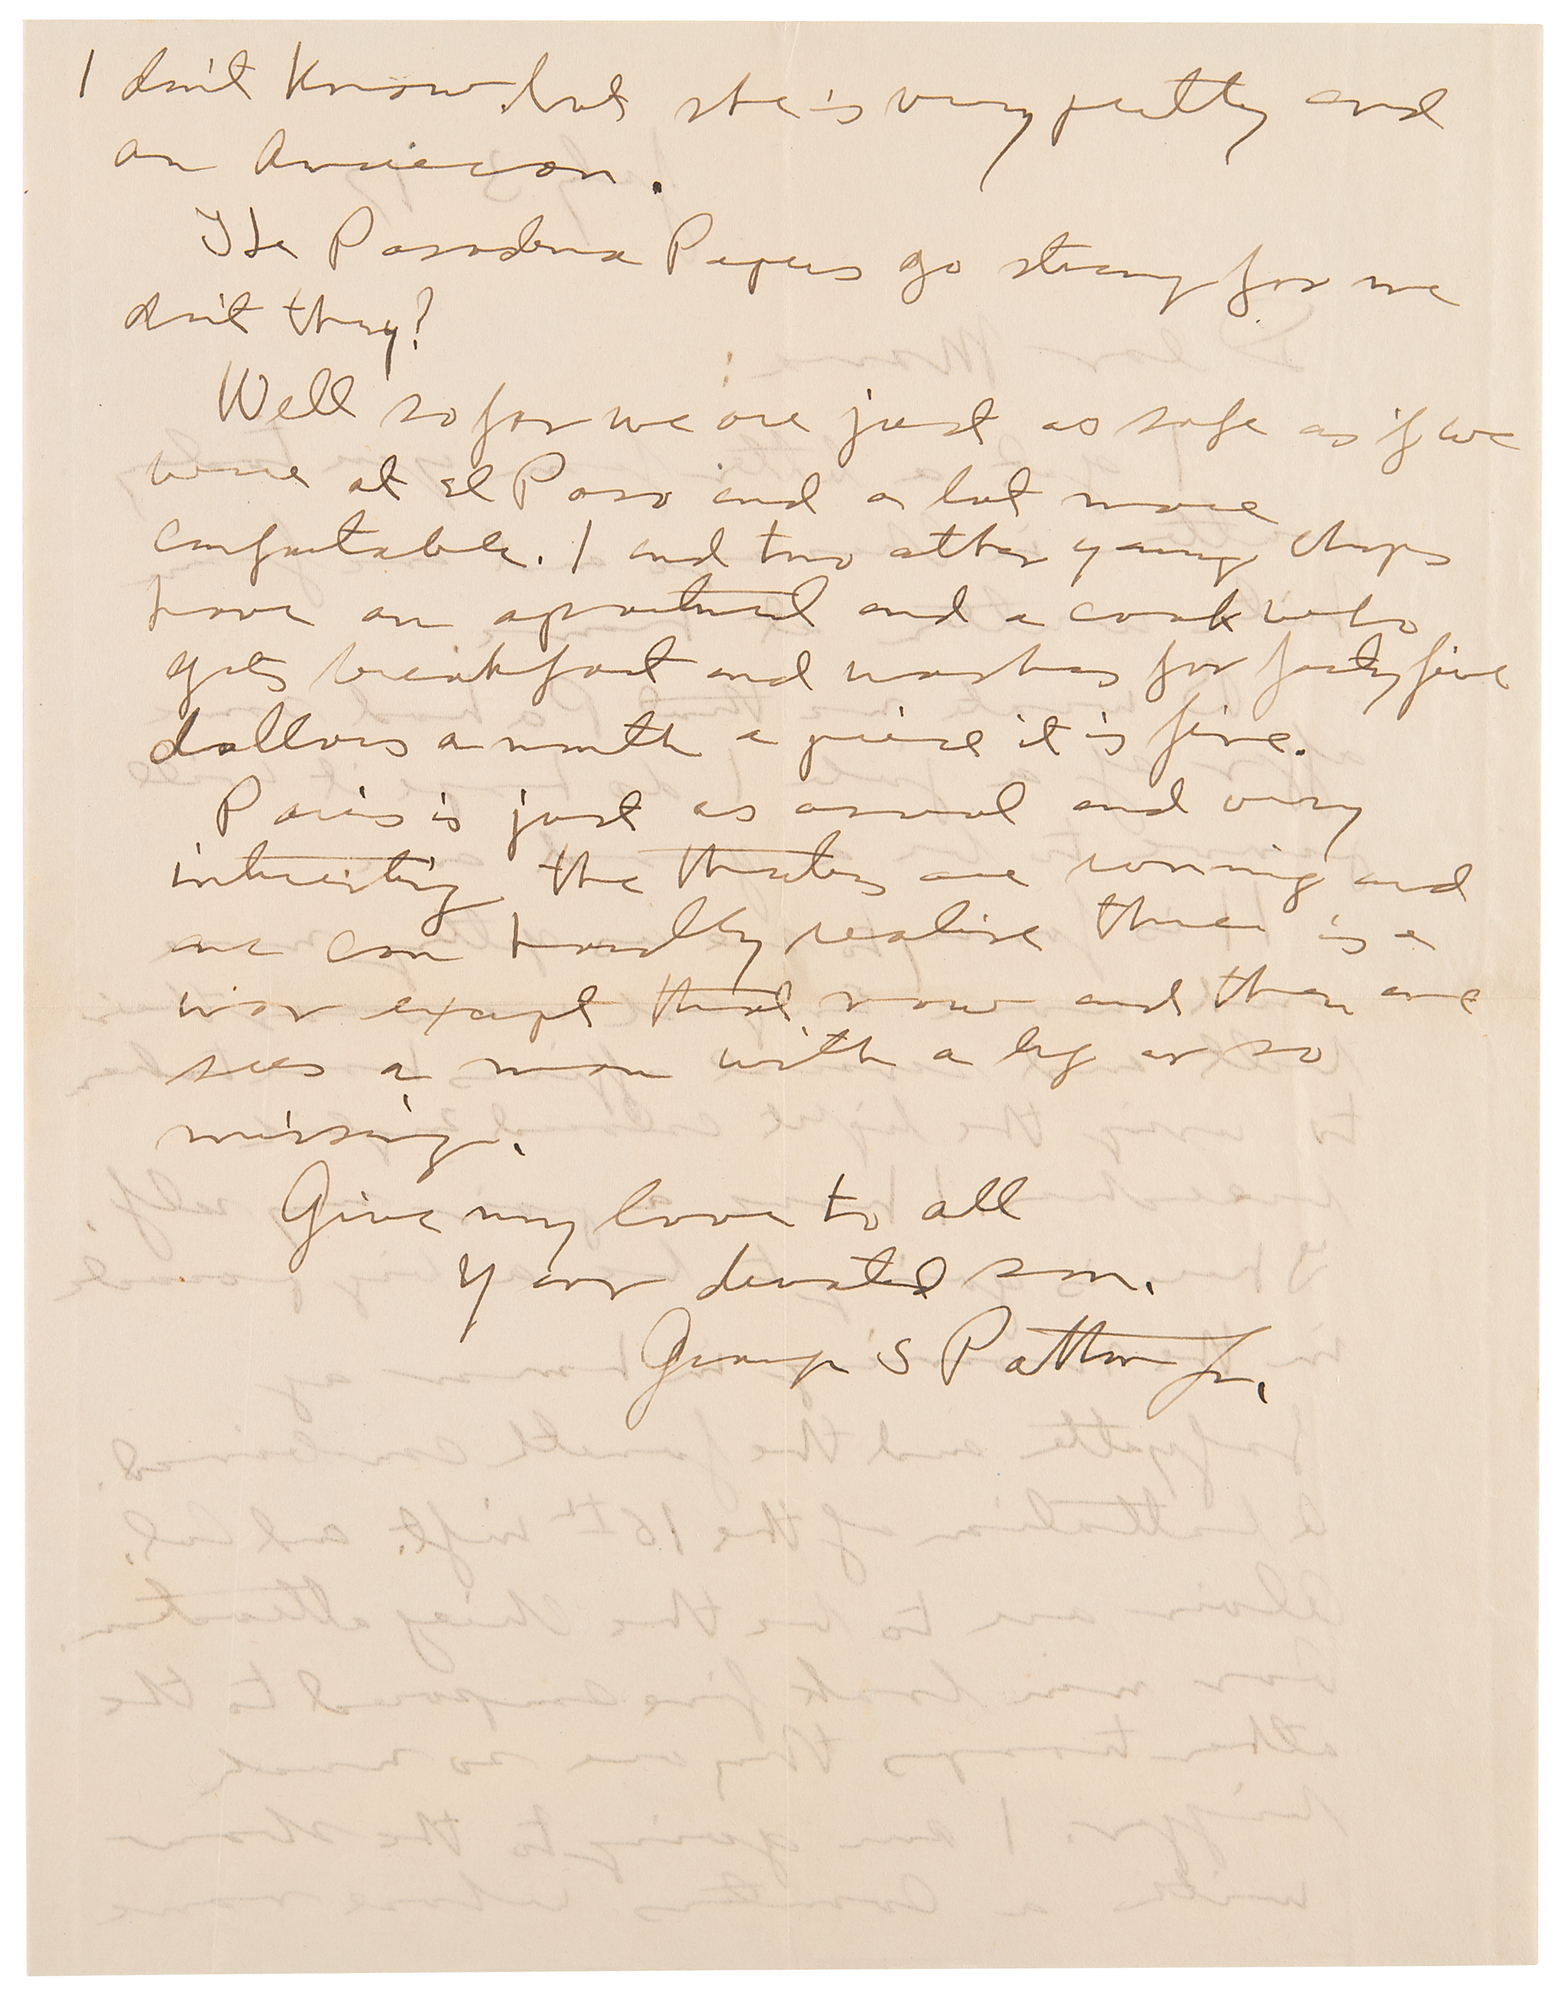 I don't know but she is very pretty and
an American.
The Pasadena Papers go strong for me
don't they?
Well so far we are just as safe as if we
were at El Paso and a lot more
comfortable. I and two other young chaps
have an apartment and a cook who
gets breakfast and washes for forty five
dollars a month a piece it is fine.
Paris is just as usual and very
interesting the theaters are running and
one can hardly realise there is a
war except that now and then one
sees a man with a leg or so
missing.
Give my love to all
Your devoted son.
George S Patton Jr.